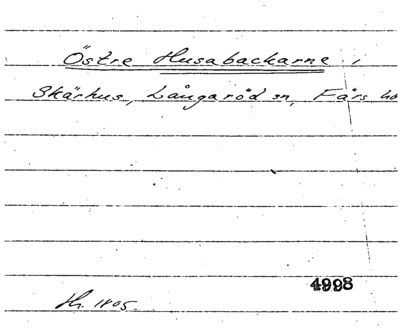 Östre Husabackarne,
Skärhus, Långaröd sn, Färs
4998
1805.